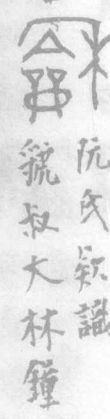 阮氏欵識
虢叔大林鐘